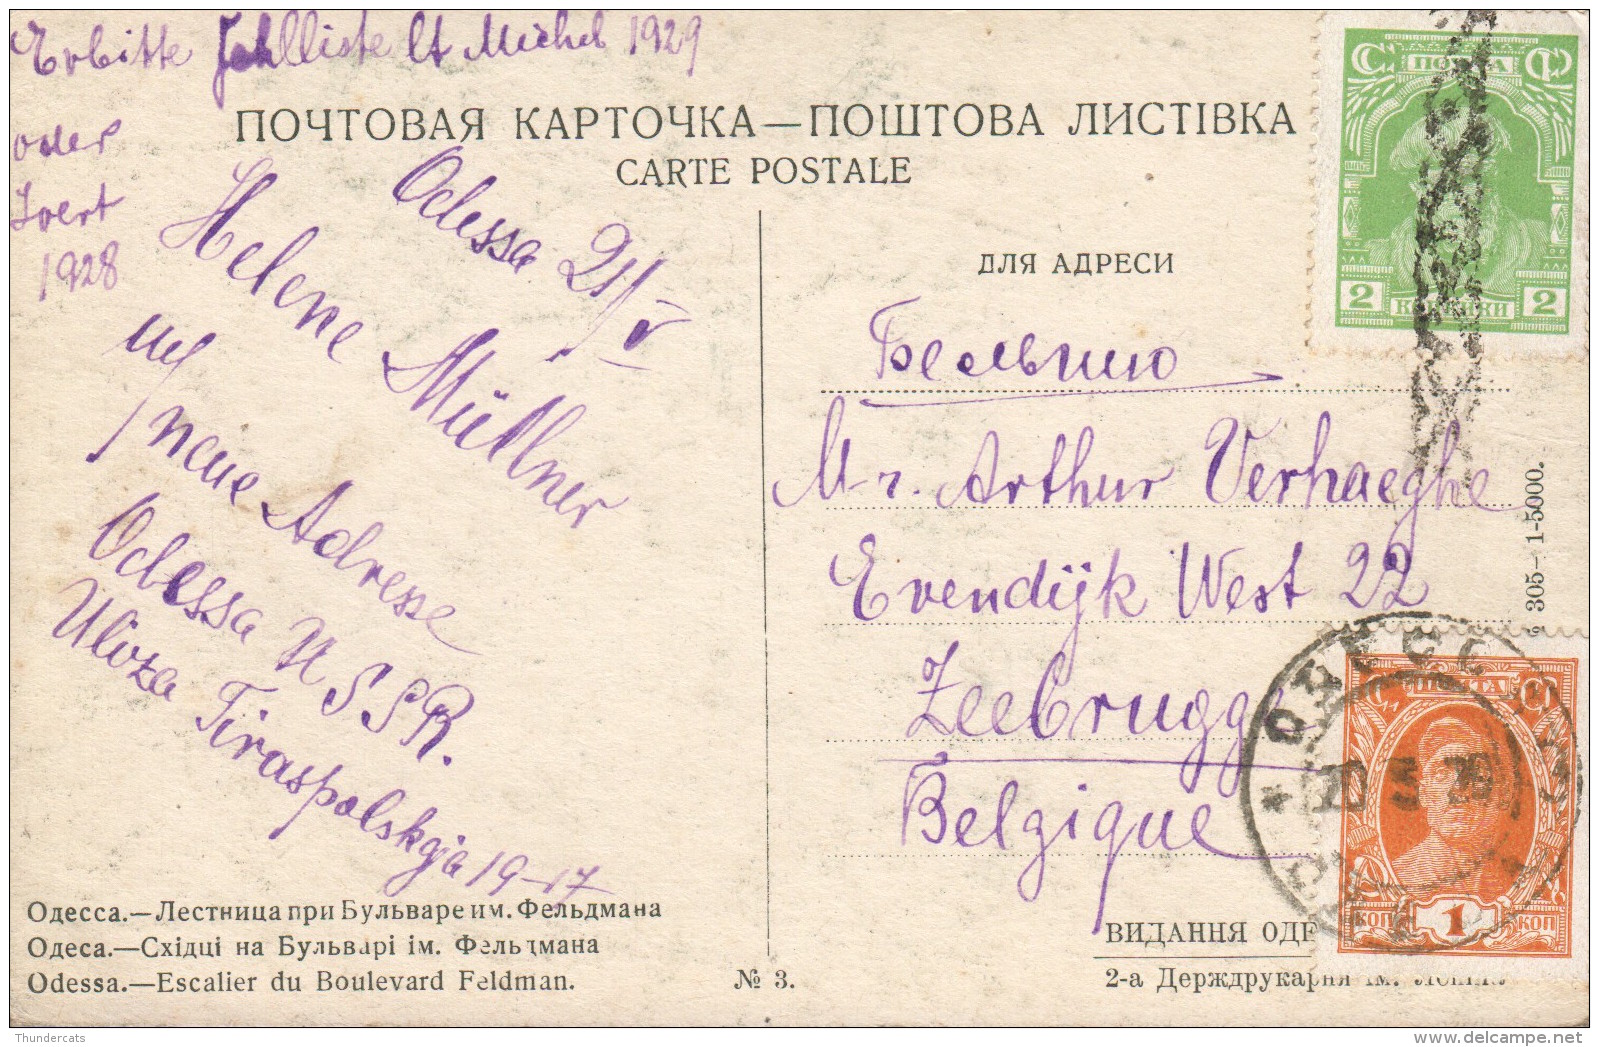 Erbitte Fehlliste lt Michel 1929
oder
Ivert
1928
ПОЧТОВАЯ КАРТОЧКА—ПОШТОВА ЛИСТІВКА
CARTE POSTALE
Odessa 21/V
Helene Müllner
neue Adresse
Odessa USSR.
Uliza Tiraspolskaja 19-17
Одесса.—Лестница при Бульваре им. Фельдмана
Одеса.—Східці на Бульварі ім. Фельдмана
Odessa.—Escalier du Boulevard Feldman.
№ 3.
ДЛЯ АДРЕСИ
Бельгию
M-r. Arthur Verhaeghe
Evendijk West 22
Zeebrugge
Belgique
ВИДАННЯ
2-а Держдрукарня ім.
305— 1-5000.
ПОЧТА
2 КОПЕЙКИ 2
ПОЧТА
КОП 1 КОП
ОДЕССА
Thundercats
delcampe.net